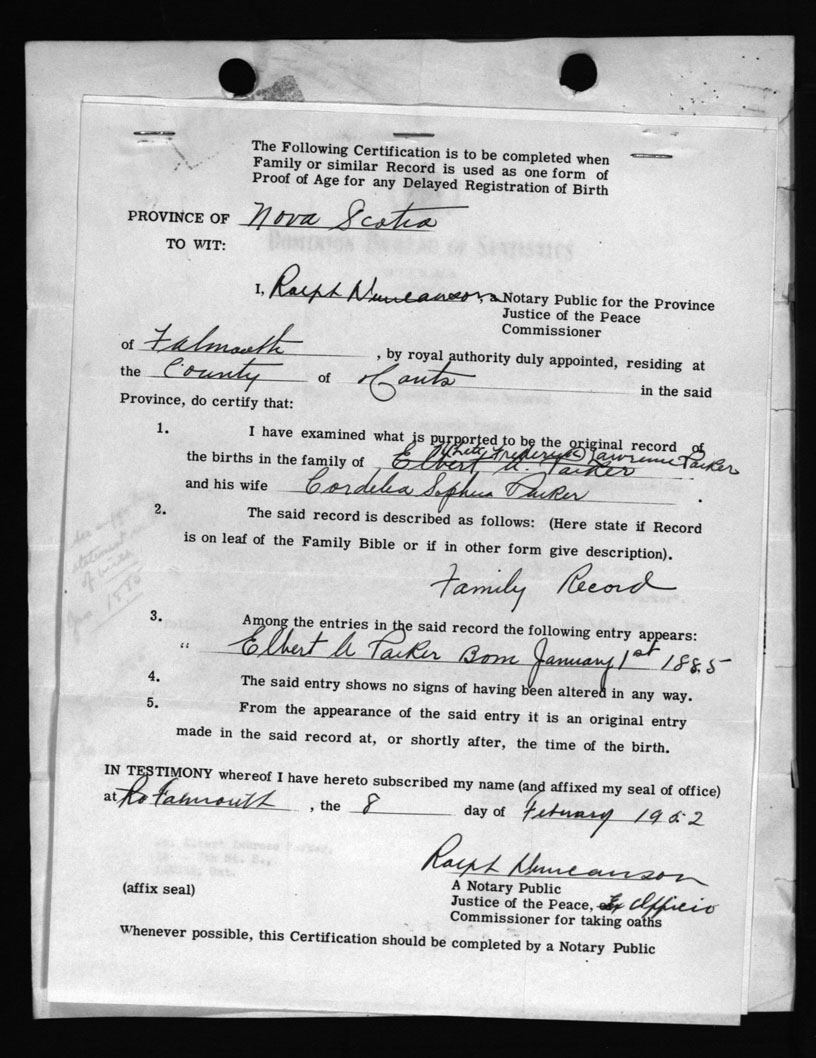 The Following Certification is to be completed when
Family or similar Record is used as one form of
Proof of Age for any Delayed Registration of Birth
PROVINCE OF Nova Scotia
TO WIT:
DOMINION BUREAU OF STATISTICS
I, Ralph Duncanson, a Notary Public for the Province
Justice of the Peace
Commissioner
of Falmouth , by royal authority duly appointed, residing at
the County of Hants in the said
Province, do certify that:
1. I have examined what is purported to be the original record of
White Frederick Lawrence Parker
the births in the family of Elbert A. Parker
and his wife Cordelia Sophia Parker .
2. The said record is described as follows: (Here state if Record
is on leaf of the Family Bible or if in other form give description).
Family Record
3. Among the entries in the said record the following entry appears:
" Elbert A Parker Born January 1st 1885
4. The said entry shows no signs of having been altered in any way.
5. From the appearance of the said entry it is an original entry
made in the said record at, or shortly after, the time of the birth.
IN TESTIMONY whereof I have hereto subscribed my name (and affixed my seal of office)
at Falmouth , the 8 day of February 1952
Ralph Duncanson
(affix seal)
A Notary Public
Justice of the Peace, Ex Officio
Commissioner for taking oaths
Whenever possible, this Certification should be completed by a Notary Public